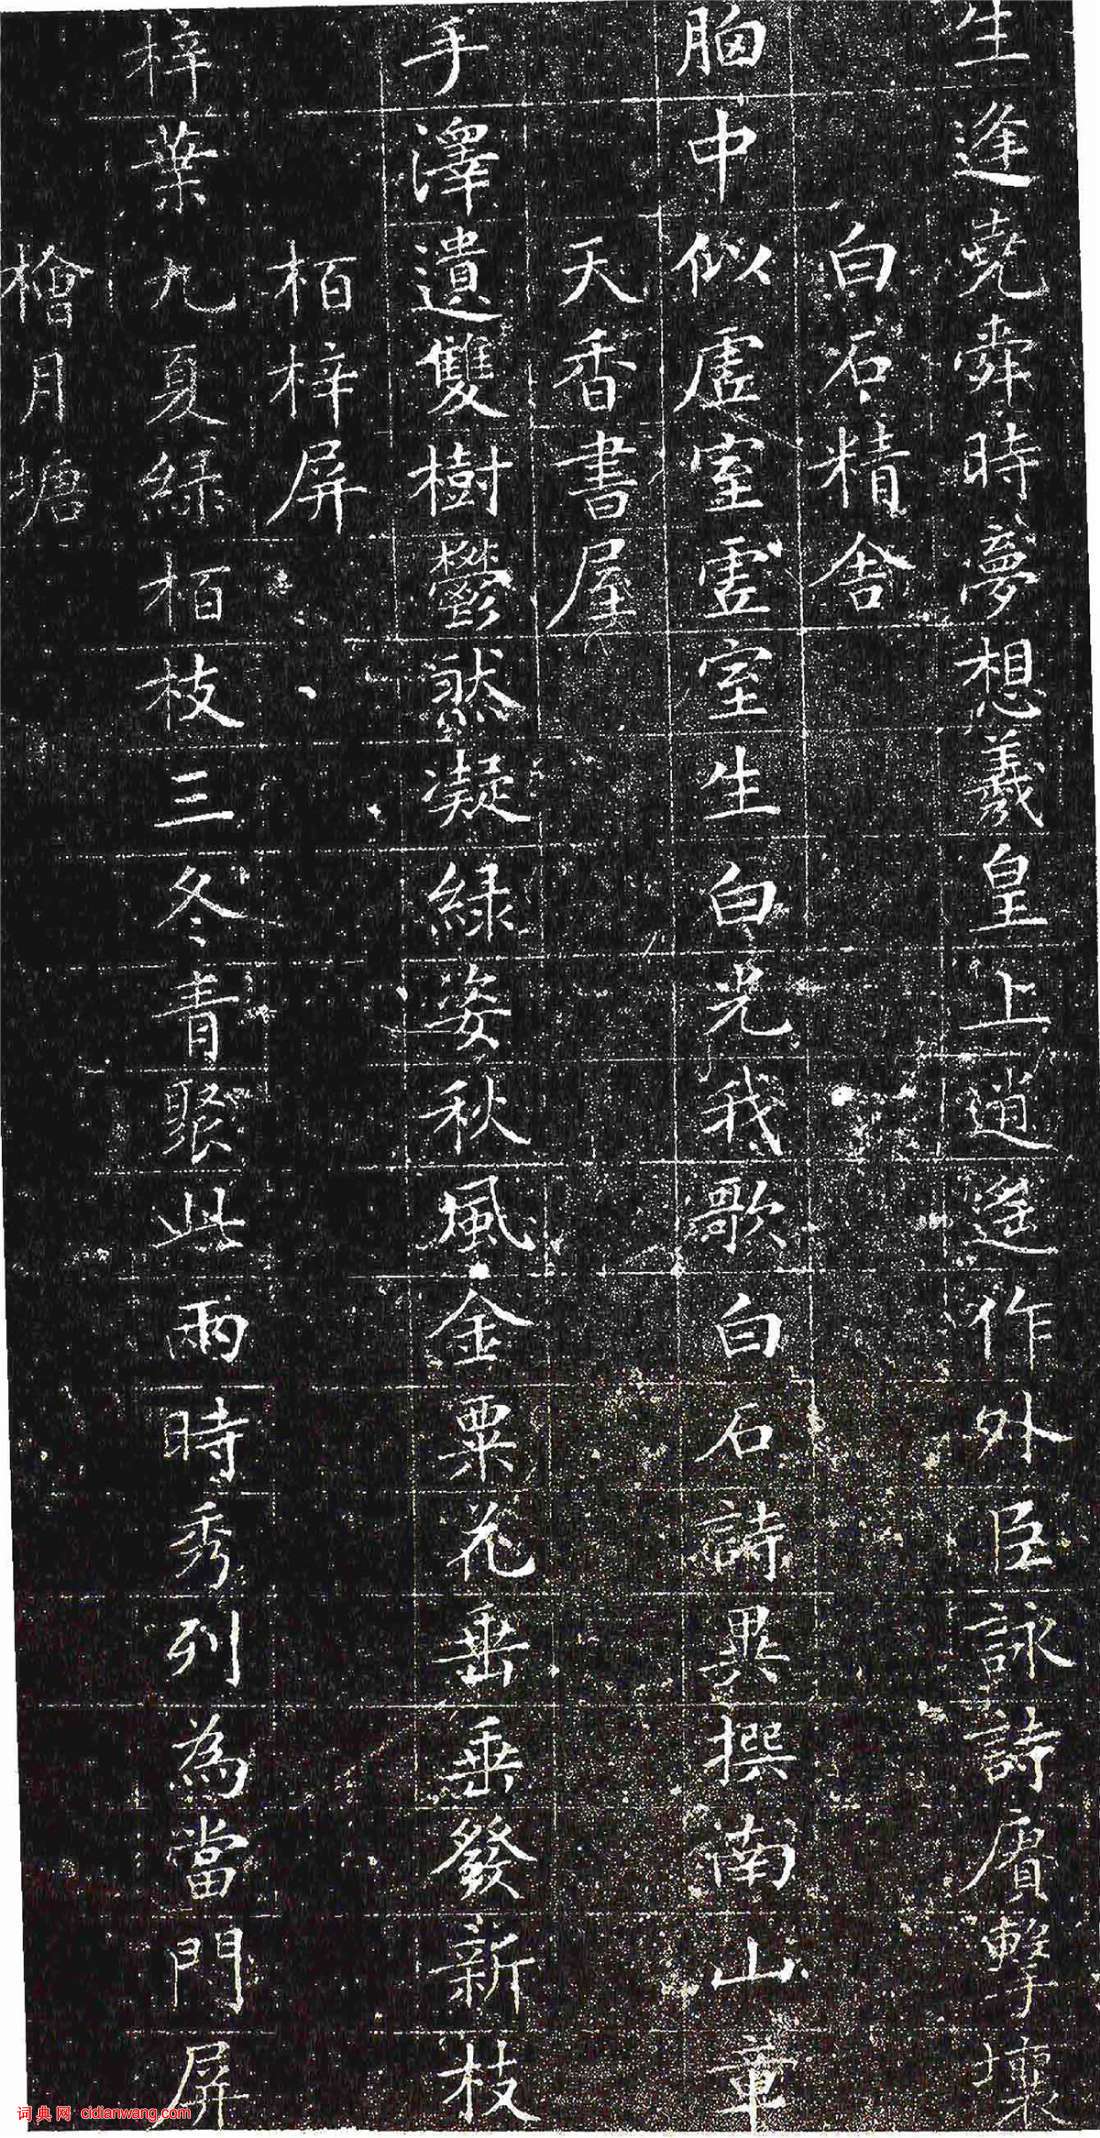 生逢堯舜時夢想羲皇上逍遥作外臣詠詩賡擊壤
白石精舍
胸中似虛室虛室生白光我歌白石詩異撰南山章
天香書屋
手澤遺雙樹鬱然凝綠姿秋風金粟花垂垂發新枝
栢梓屏
梓葉九夏綠栢枝三冬青聚此兩時秀列為當門屏
檜月塘
词典网 cidianwang.com